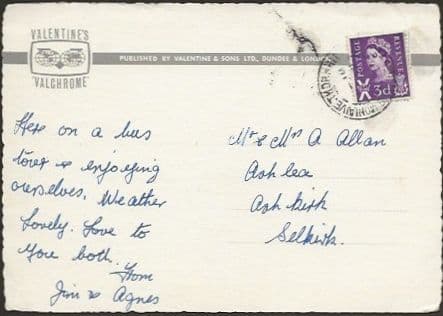 VALENTINE'S
"VALCHROME"
PUBLISHED BY VALENTINE & SONS LTD., DUNDEE & LONDON
POSTAGE
REVENUE
3d
Here on a bus
tour & enjoying
ourselves. Weather
Lovely. Love to
you both.
From
Jim & Agnes
Mr & Mrs A Allan
Ashlea
Ashkirk
Selkirk.